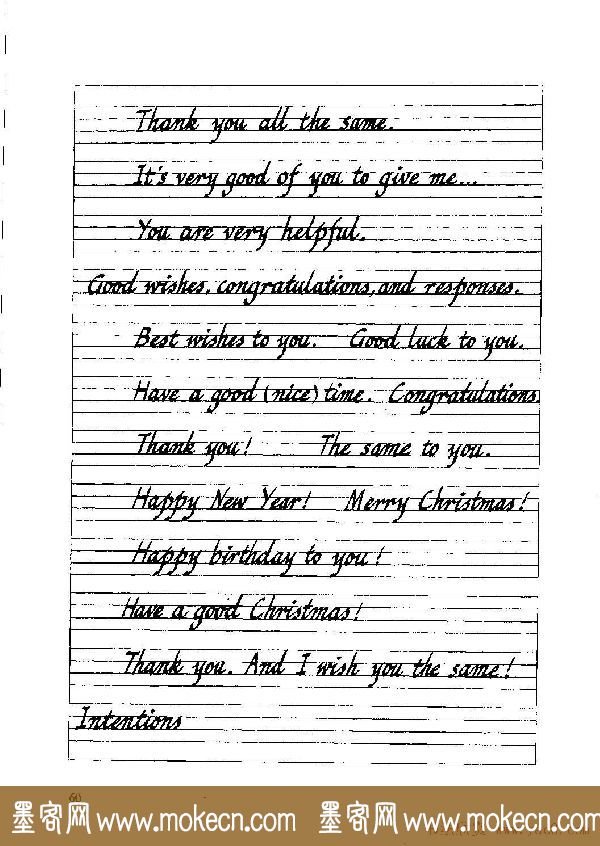 Thank you all the same.
It's very good of you to give me...
You are very helpful.
Good wishes, congratulations, and responses.
Best wishes to you. Good luck to you.
Have a good (nice) time. Congratulations.
Thank you! The same to you.
Happy New Year! Merry Christmas!
Happy birthday to you!
Have a good Christmas!
Thank you. And I wish you the same!
Intentions
60
墨客网 www.mokecn.com 墨客网 www.mokecn.com